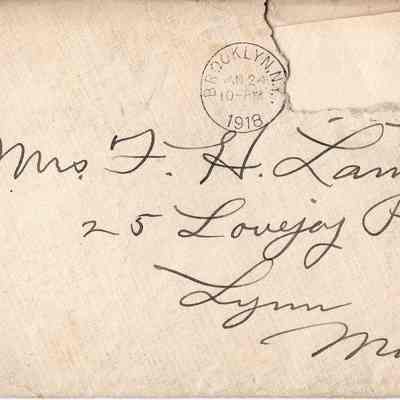 BROOKLYN, N.Y.
JAN 24
10-PM
1918
Mrs. F. H. Lam
25 Lovejoy R
Lynn
Ma